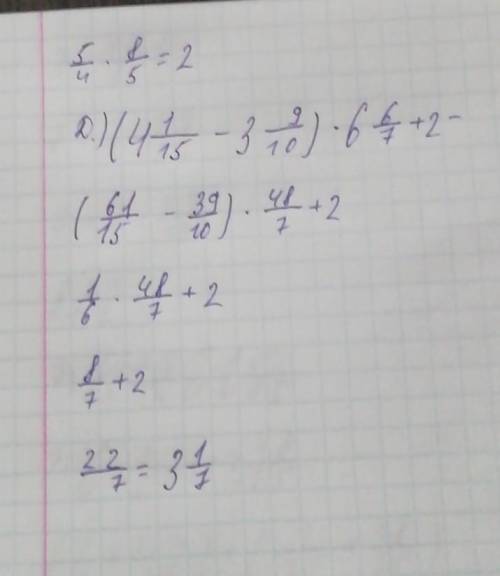 5/4 · 8/5 = 2
D.) (4 1/15 − 3 9/10) · 6 6/7 + 2 −
(61/15 − 39/10) · 48/7 + 2
1/6 · 48/7 + 2
8/7 + 2
22/7 = 3 1/7